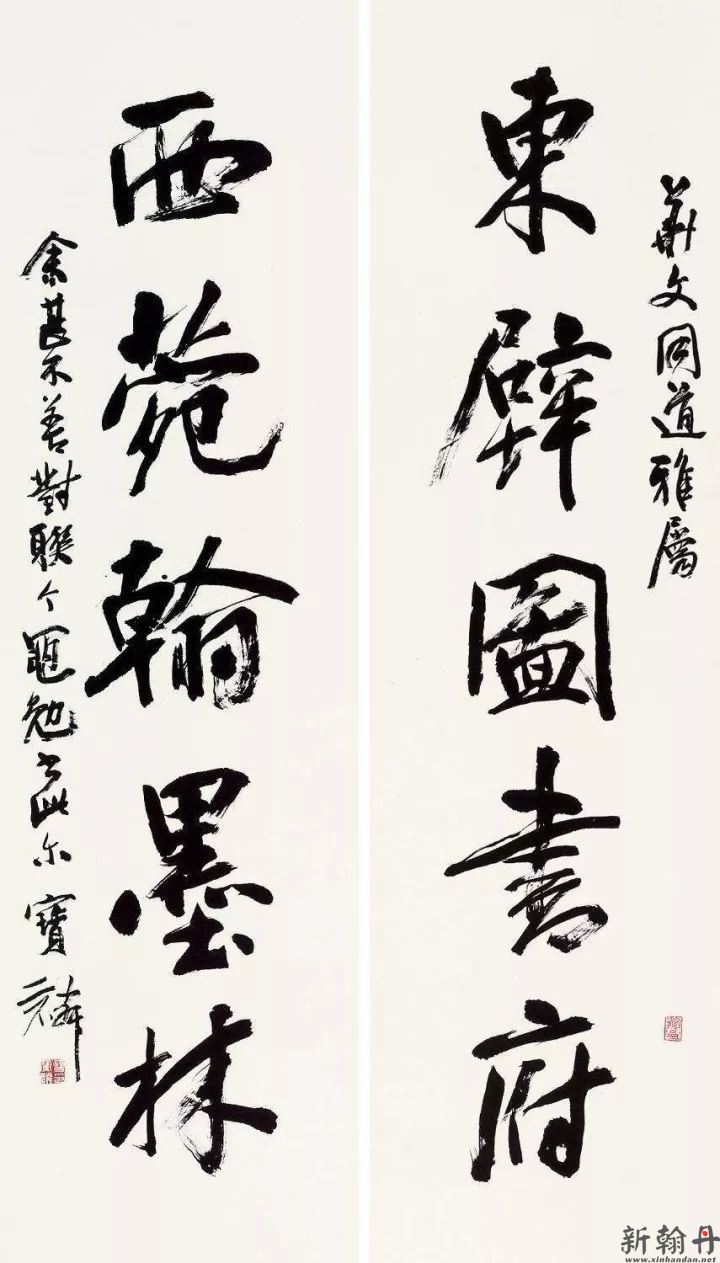 華文同道雅屬
東壁圖書府
西苑翰墨林
余甚不善對聯今黽勉書此尔 寶
新翰丹
www.xinhandan.net